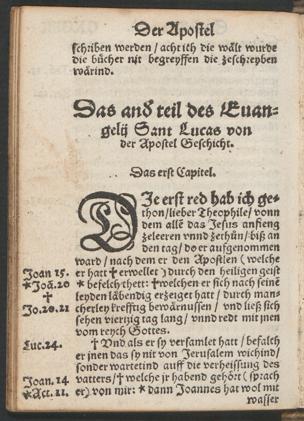 Der Apostel
schriben werden / acht ich die wält wurde
die bücher nit begreyffen die zeschreyben
wärind.
Das and teil des Euan-
gelij Sant Lucas von
der Apostel Geschicht.
Das erst Capitel.
DIe erst red hab ich ge-
thon / lieber Theophile / vonn
dem allē das Jesus anfieng
zeleeren vnnd zethůn / biß an
den tag / do er aufgenommen
ward / nach dem er den Apostlen (welche
Joan 15. er hatt † erwellet) durch den heiligen geist
*Joā.20 * befelch thett: † welchen er sich nach seinē
† leyden läbendig erzeiget hatt / durch man-
Jo.20.21 cherley krefftig bewärnussen / vnd ließ sich
sehen viertzig tag lang / vnnd redt mit jnen
vom reych Gottes.
Luc.24. † Vnd als er sy versamlet hatt / befalch
er jnen das sy nit von Jerusalem wichind /
sonder wartetind auff die verheissung des
Joan.14 vatters / † welche jr habend gehört (sprach
*Act.11. er) von mir: * dann Joannes hat wol mit
wasser